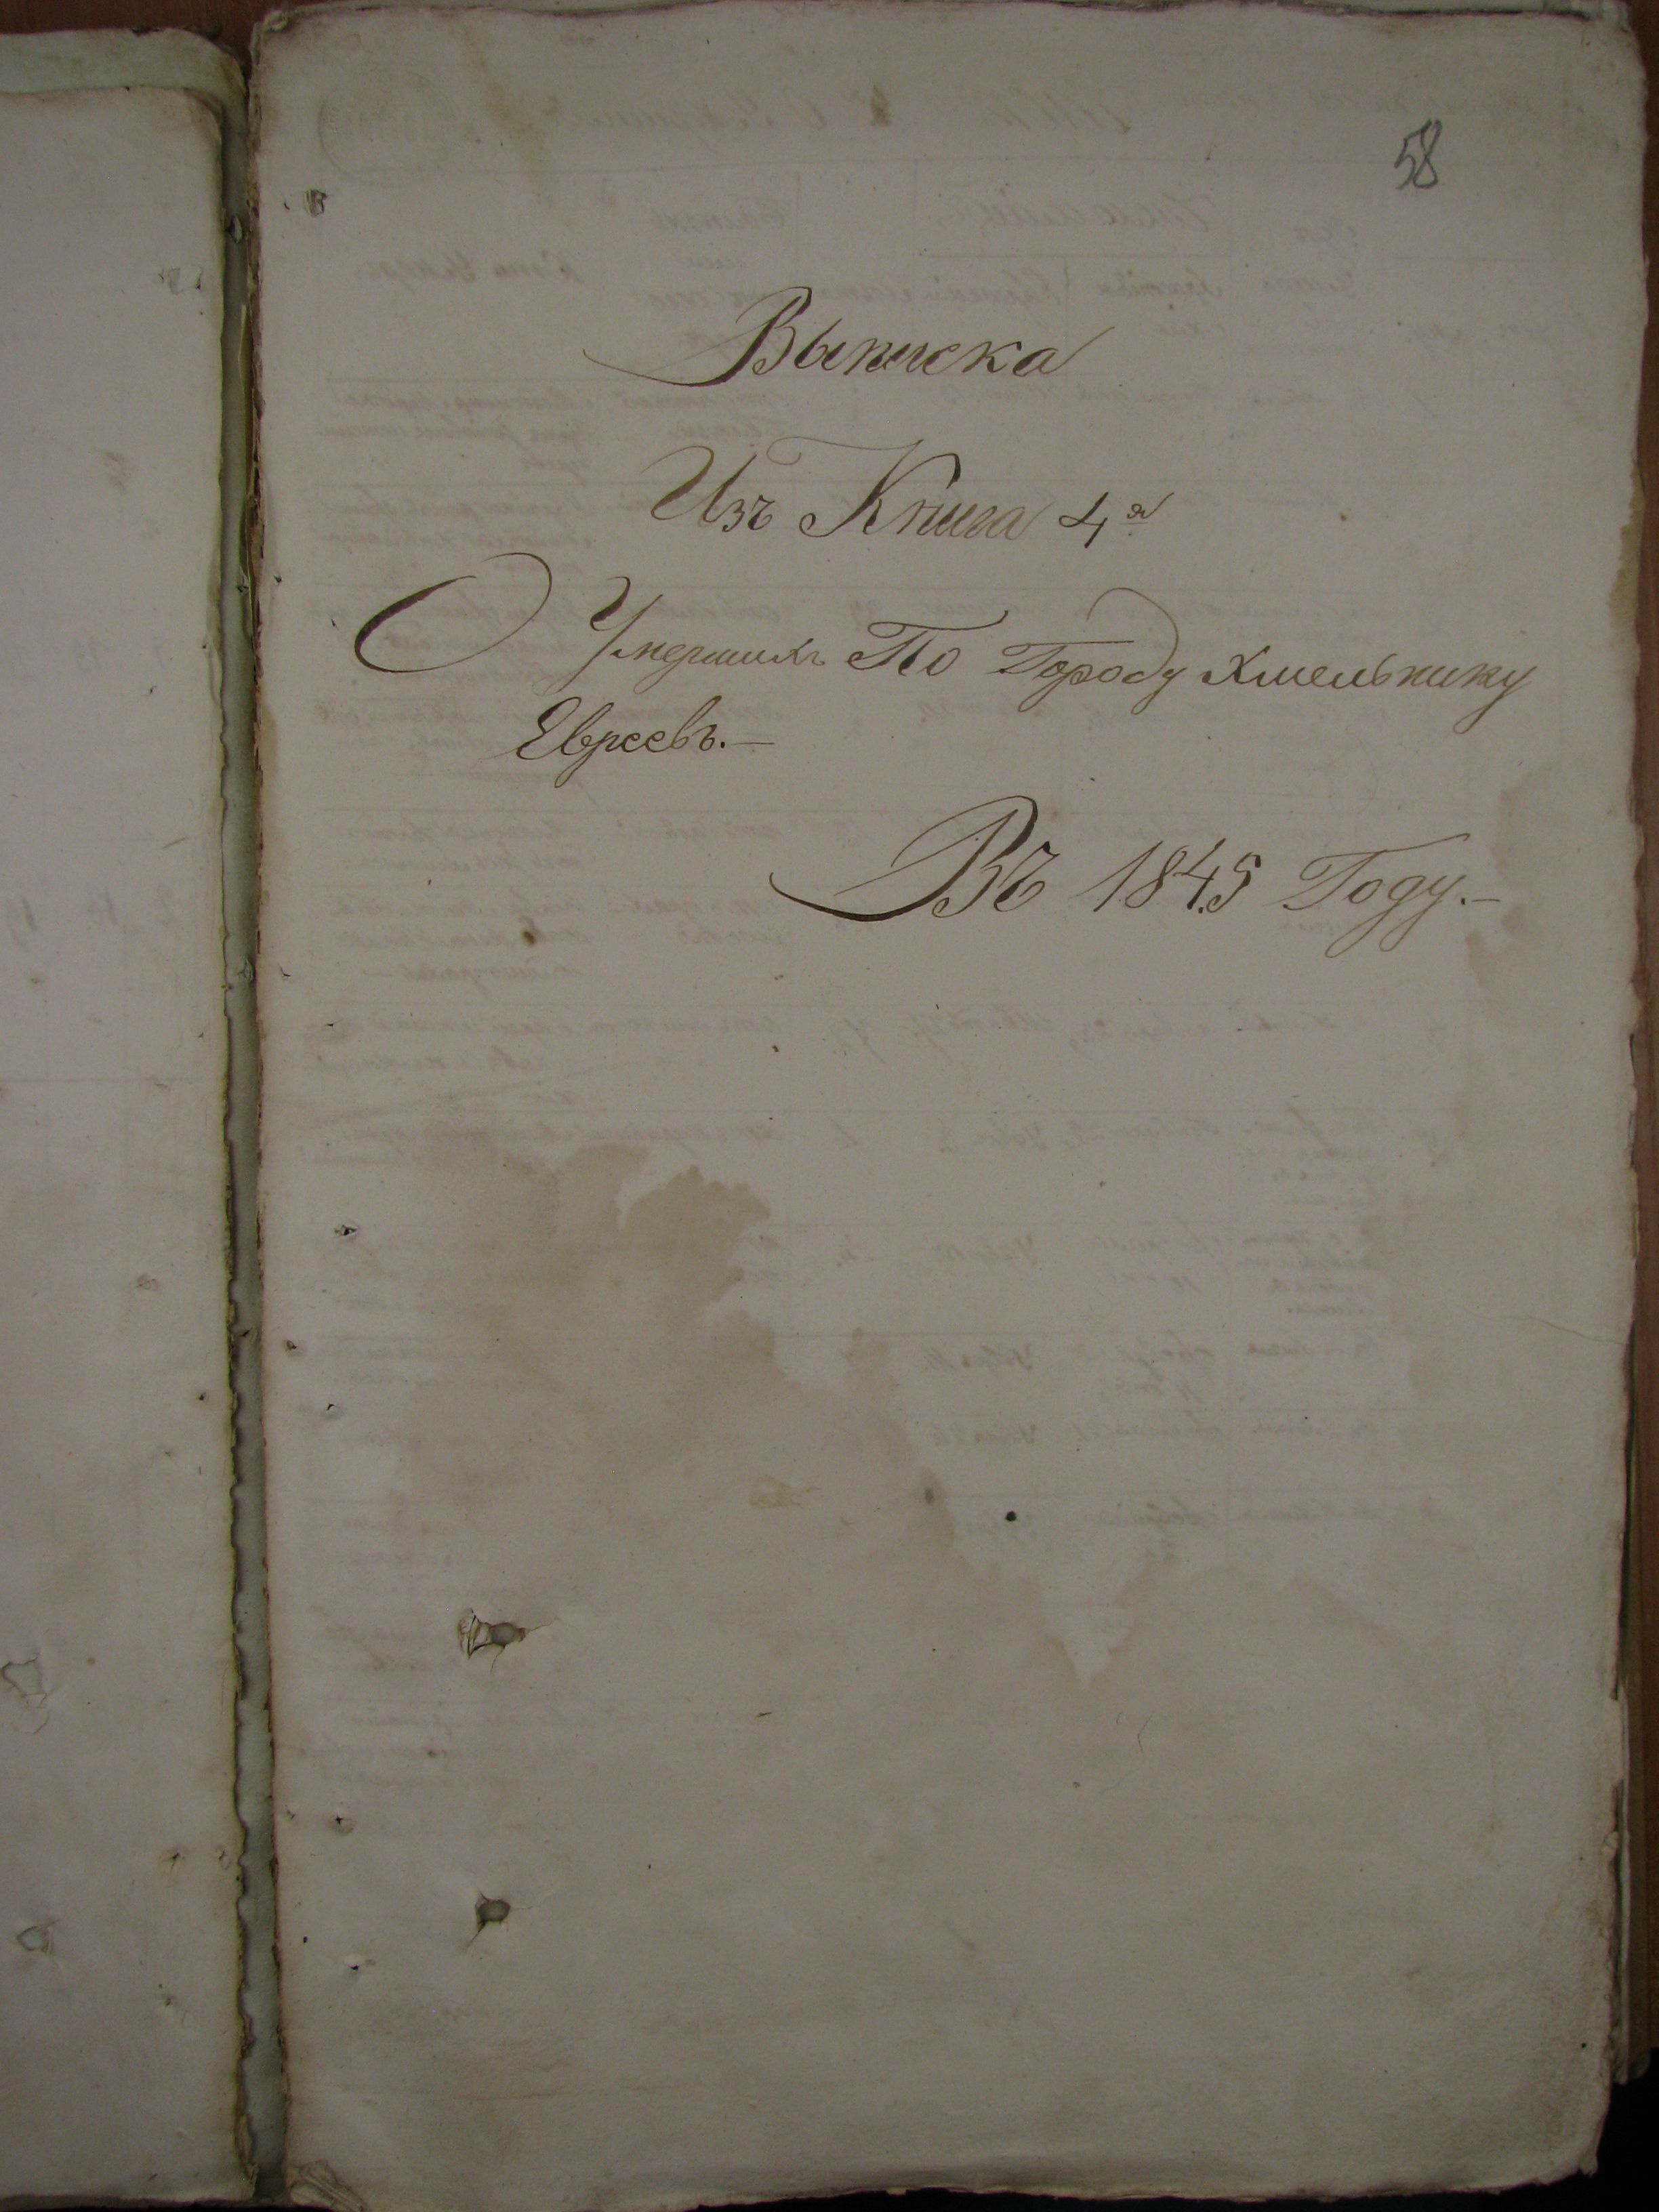 58
Выписка
Изъ Книга 4я
О Умершихъ По Городу Хмельнику
Евреевъ.—
Въ 1845 Году.—